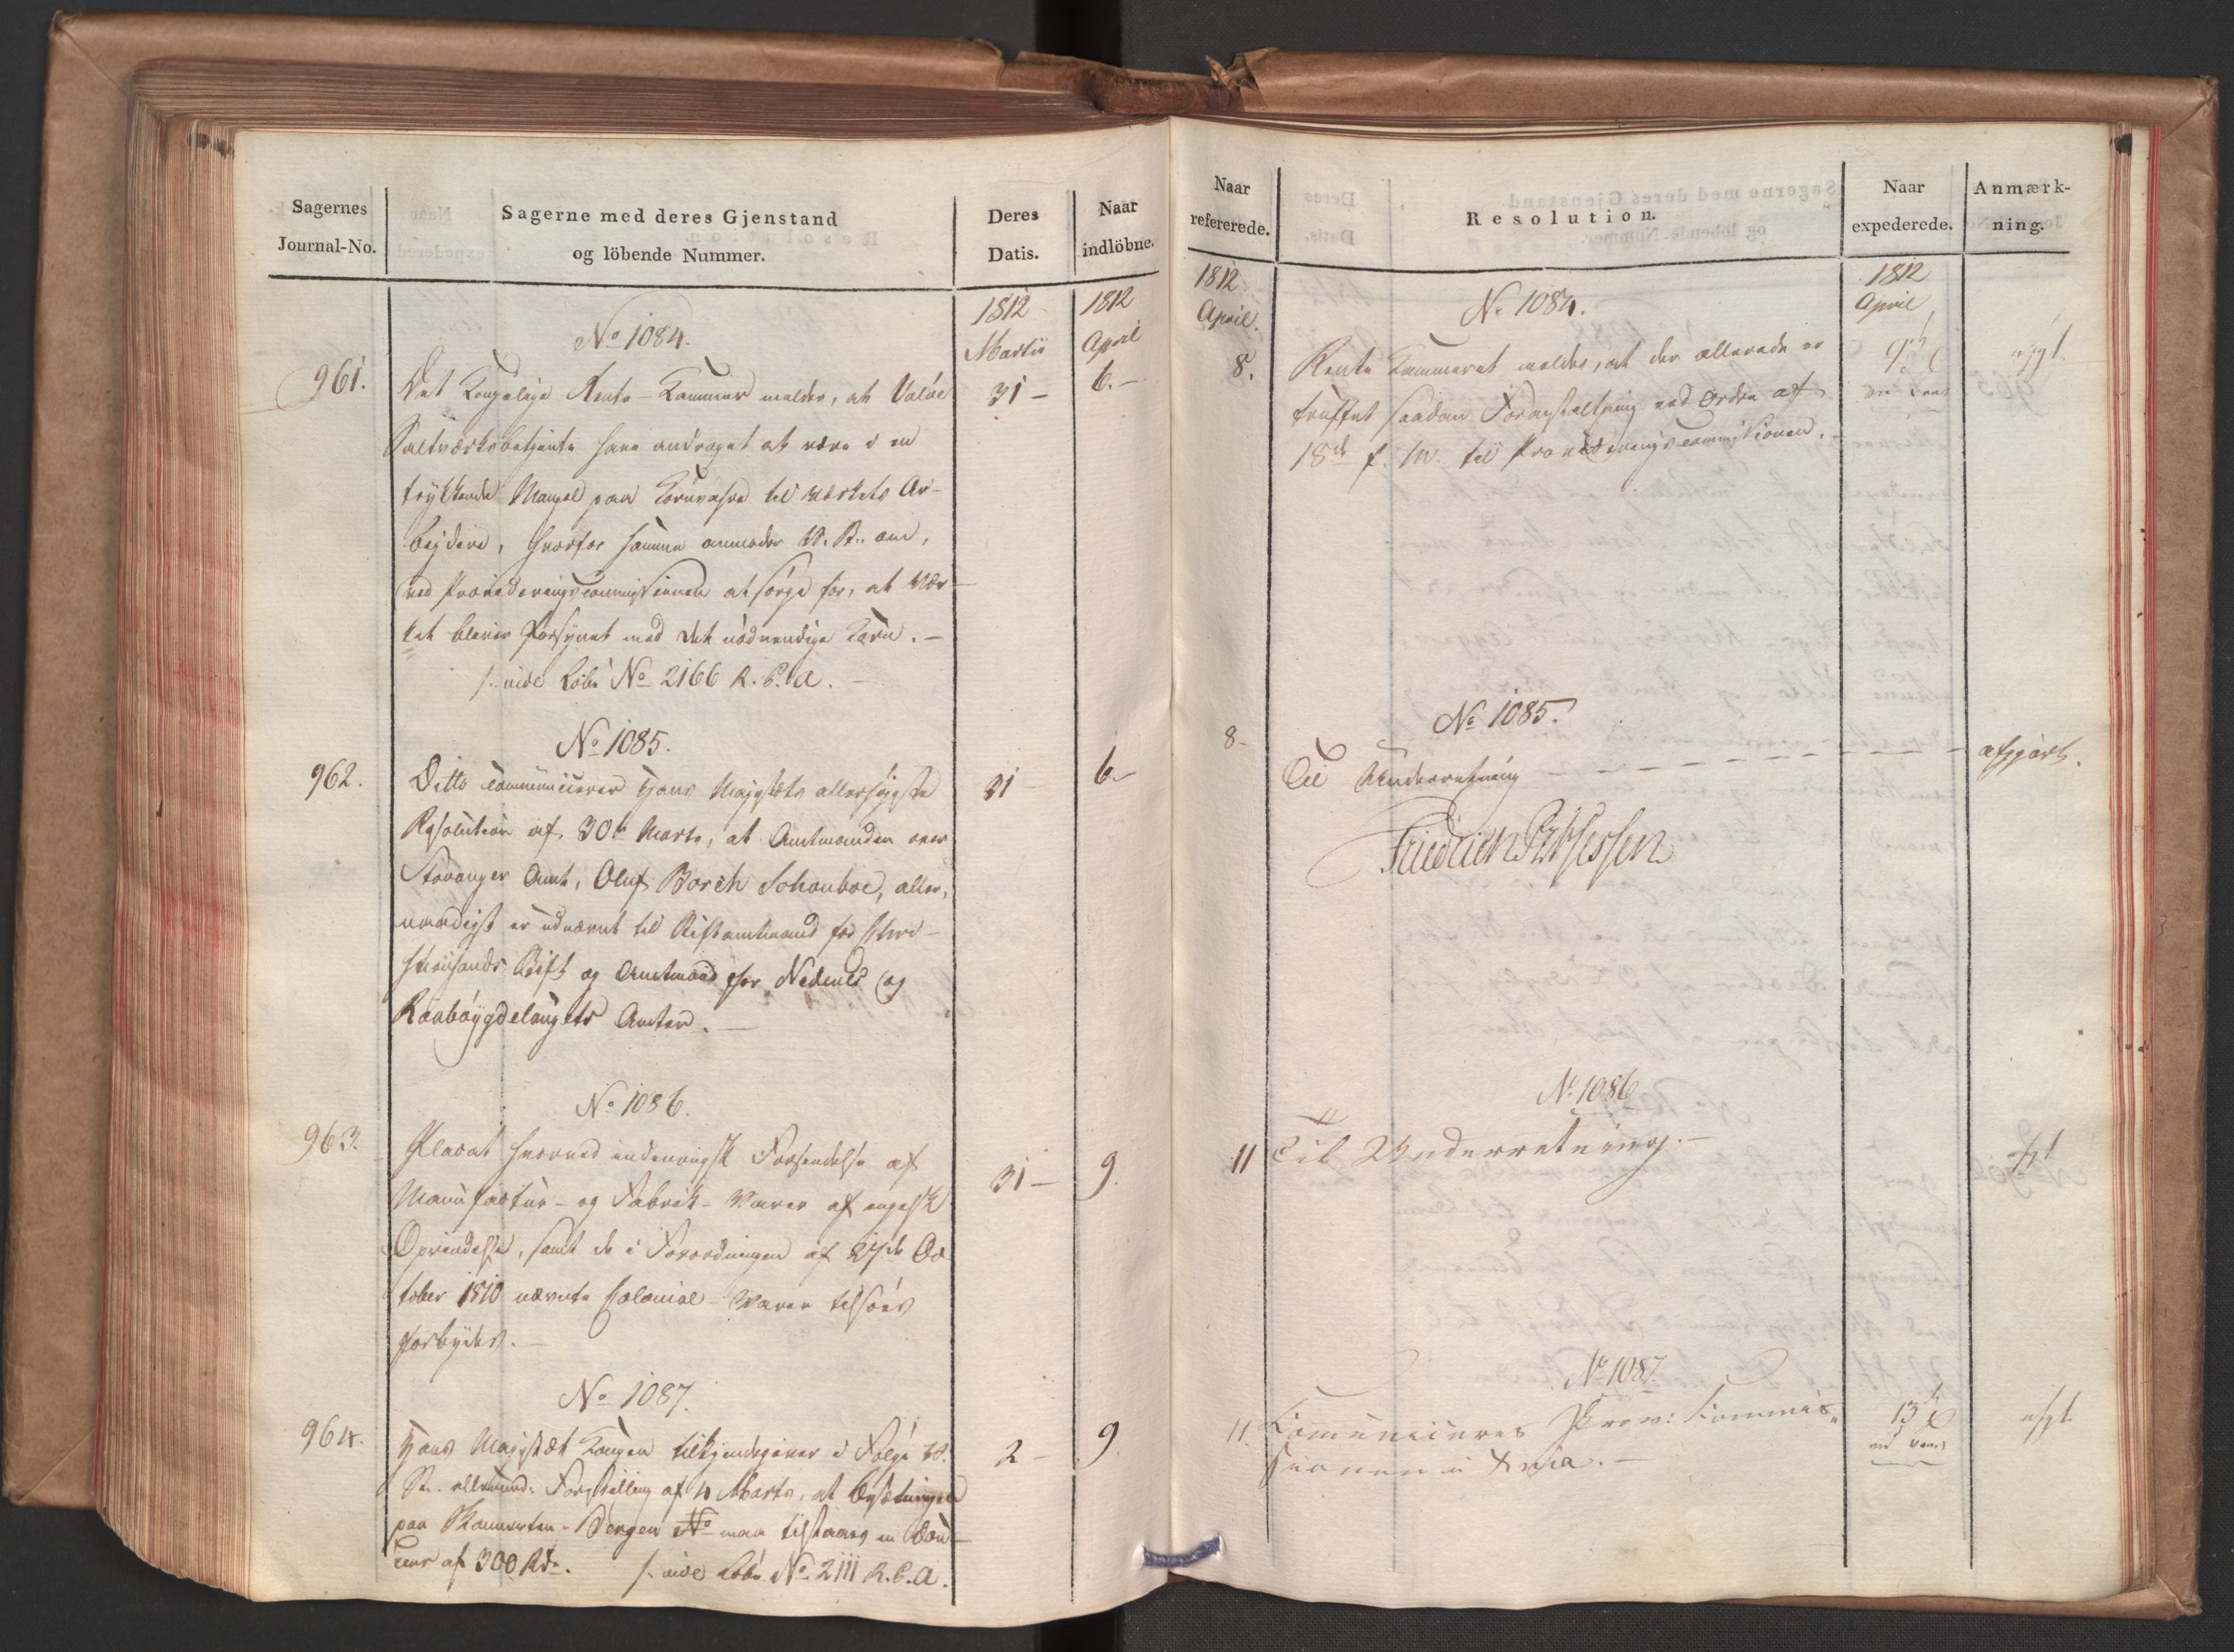 Sagernes
Journal-No.
Sagerne med deres Gjenstand
og löbende Nummer.
Deres
Datis.
Naar
indlöbne.
1812
Martii
1812
April
No 1084.
961.
Det Kongelige Rente-Kammer melder, at Valöe
31 -
6. -
Saltværksbetjente have andraget at være i en
trykkende Mangel paa Kornvahre til Værkets Ar-
beidere, hvorfor samme anmoder
ved Provideringscommissionen at sörge for, at Vær-
ket bliver forsynet med det nödvendige Korn. -
/: vide Löbe No 2166 R. C. A. -
No 1085.
962.
Ditto communicerer Hans Majestæts allerhöieste
31
6. -
Resolution af 30te Marts, at Amtmanden over
Stavanger Amt, Oluf Borch Schouboe, aller-
naadigst er udnævnt til Stiftamtmand for Chri-
stiansands Stift og Amtmand for Nedenes og
Raabøygdelaugets Amter. -
No 1086.
963.
Placat hvorved indenrigsk Forsendelse af
31 -
9.
Manufactur- og Fabrik-Varer af engelsk
Oprindelse, samt de i Forordningen af 27de Oc
tober 1810 nævnte Colonial-Varer tilsöes
forbydes. -
No 1087.
964.
Hans Majestæt Kongen tilkjendegiver i Fölge
2 -
9
allerund: Forestilling af 4 Marts, at Besætningen
paa Kanonbaaden Bergen No maa tilstaaes en Dou-
ceur af 300 Rd. /: vide Löbe No 2111 R. C. A.
Naar
refererede.
Resolution.
Naar
expederede.
Anmærk-
ning.
1812
April.
1812
April
No 1084.
8.
Rente Kammeret meldes, at der allerede er
truffet saadan Foranstaltning ved Ordre af
18de f. M. til Provideringscommissionen. -
No 1085.
8-
Til Underretning
afgjort.
Friedrich
No 1086
11
Til Underretning. -
No 1087.
11.
Communiceres Prov: Commis-
13
sionen i Xnia. -